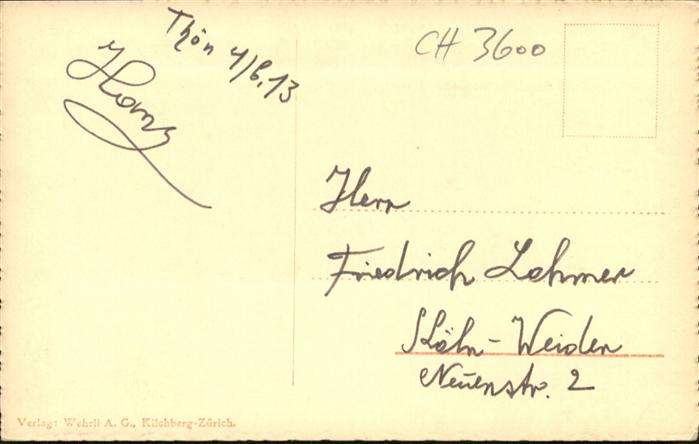 Thön 4/6.13
Hans
CH 3600
Herr
Friedrich Lohmer
Köln-Weiden
Neuenstr. 2
Verlag: Wehrli A. G., Kilchberg-Zürich.